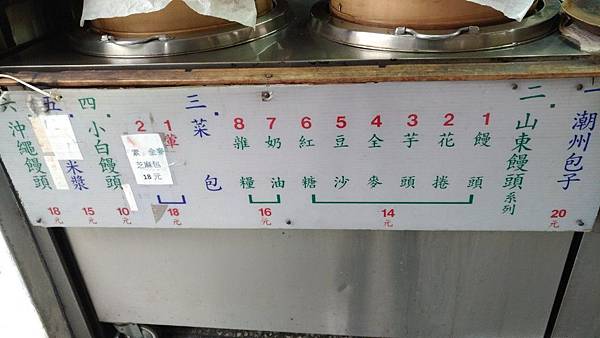 一 潮州包子
20元
二 山東饅頭系列
1 饅頭
2 花捲
3 芋頭
4 全麥
5 豆沙
6 紅糖
14元
7 奶油
8 雜糧
16元
三 菜包
1 葷
2
18元
素 全麥
芝麻包
18元
四 小白饅頭
10元
五 米漿
15元
六 沖繩饅頭
18元